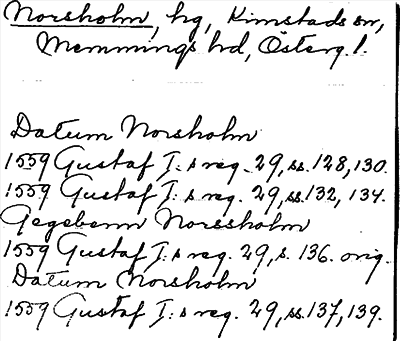 Norsholm, hg, Kimstads sn,
Memmings hd, Österg. l.
Datum Norsholm
1559 Gustaf I:s reg. 29, ss. 128, 130.
1559 Gustaf I:s reg. 29, ss. 132, 134.
Gegebenn Norssholm
1559 Gustaf I:s reg. 29, s. 136. orig.
Datum Norsholm
1559 Gustaf I:s reg. 29, ss. 137, 139.